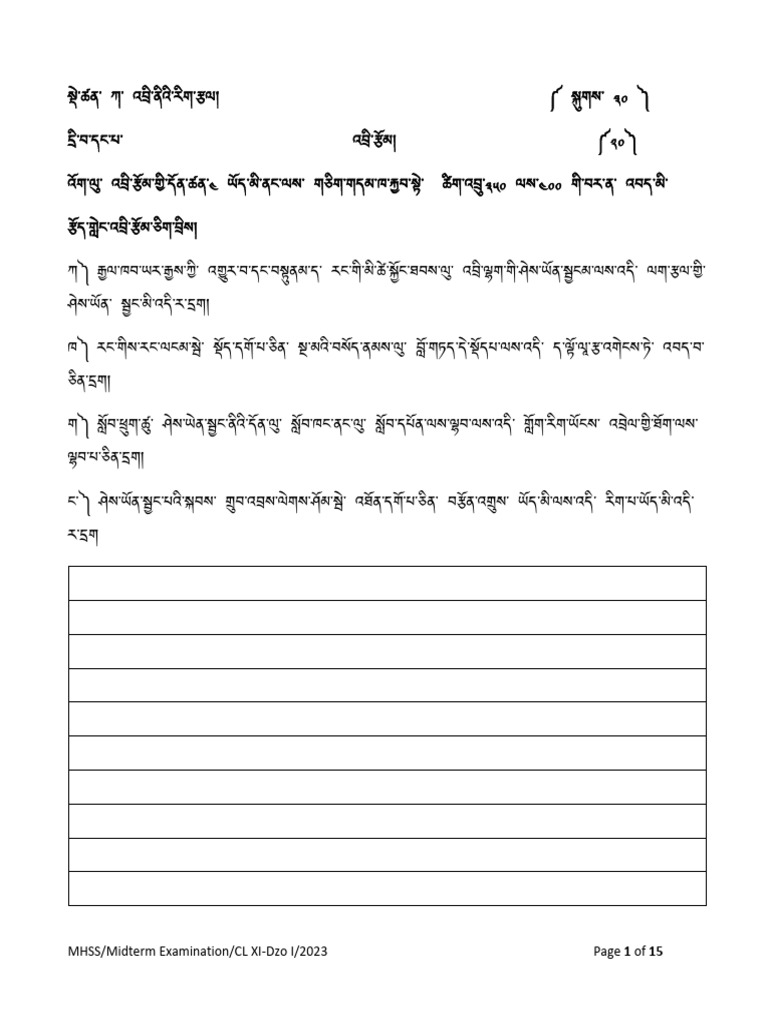 སྡེ་ཚན་ ཀ་ འབྲི་ནིའི་རིག་རྩལ། ༼ སྐུགས་ ༣༠ ༽
དྲི་བ་དང་པ་ འབྲི་རྩོམ། ༼༢༠༽
འོག་ལུ་ འབྲི་རྩོམ་གྱི་དོན་ཚན་༤ ཡོད་མི་ནང་ལས་ གཅིག་གདམ་ཁ་རྐྱབ་སྟེ་ ཚིག་འབྲུ་༣༥༠ ལས་༤༠༠ གི་བར་ན་ འབད་མི་
རྩོད་གླེང་འབྲི་རྩོམ་ཅིག་བྲིས།
ཀ༽ རྒྱལ་ཁབ་ཡར་རྒྱས་ཀྱི་ འགྱུར་བ་དང་བསྟུནམ་ད་ རང་གི་མི་ཚེ་སྐྱོང་ཐབས་ལུ་ འབྲི་ལྷག་གི་ཤེས་ཡོན་སྦྱངམ་ལས་འདི་ ལག་རྩལ་གྱི་
ཤེས་ཡོན་ སྦྱང་མི་འདི་ར་དྲག།
ཁ༽ རང་གིས་རང་ལངམ་སྦེ་ སྡོད་དགོ་པ་ཅིན་ སྔ་མའི་བསོད་ནམས་ལུ་ བློ་གཏད་དེ་སྡོདཔ་ལས་འདི་ ད་ལྟོ་ལཱ་རྩ་འགེངས་ཏེ་ འབད་བ་
ཅིན་དྲག།
ག༽ སློབ་ཕྲུག་ཚུ་ ཤེས་ཡེན་སྦྱང་ནིའི་དོན་ལུ་ སློབ་ཁང་ནང་ལུ་ སློབ་དཔོན་ལས་ལྷབ་ལས་འདི་ གློག་རིག་ཡོངས་ འབྲེལ་གྱི་ཐོག་ལས་
ལྷབ་པ་ཅིན་དྲག།
ང་༽ ཤེས་ཡོན་སྦྱང་པའི་སྐབས་ གྲུབ་འབྲས་ལེགས་ཤོམ་སྦེ་ འཐོན་དགོ་པ་ཅིན་ བརྩོན་འགྲུས་ ཡོད་མི་ལས་འདི་ རིག་པ་ཡོད་མི་འདི་
ར་དྲག
MHSS/Midterm Examination/CL XI-Dzo I/2023 Page 1 of 15